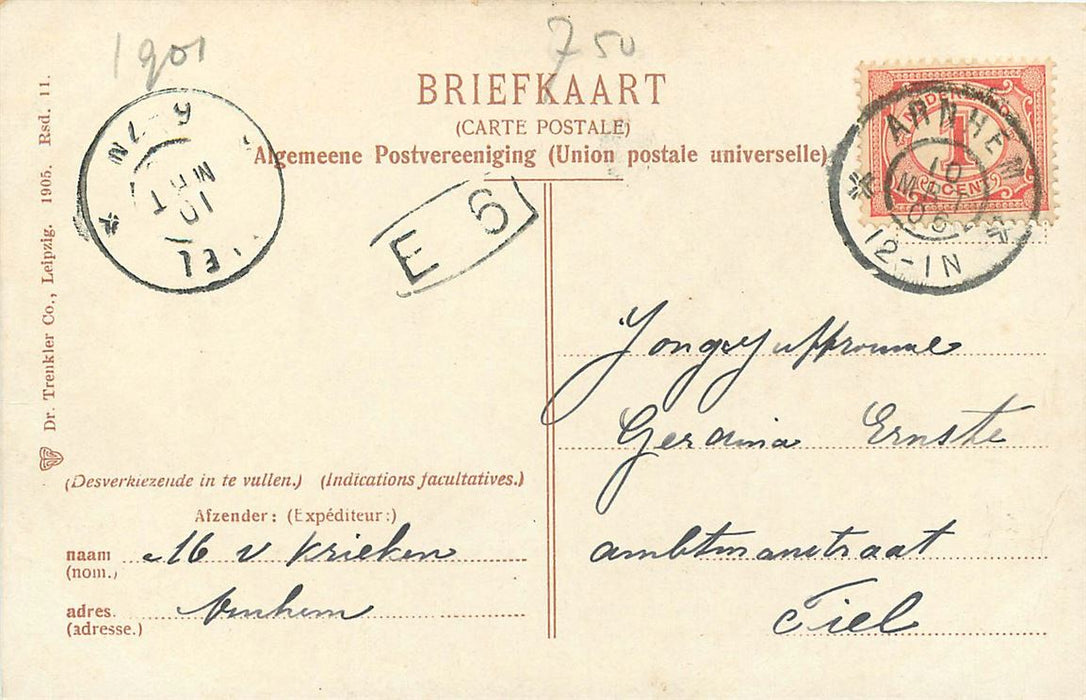 1901
7 50
BRIEFKAART
(CARTE POSTALE)
Algemeene Postvereeniging (Union postale universelle)
Dr. Trenkler Co., Leipzig. 1905. Rsd. 11.
10
MRT
E 6
ARNHEM
10
MRT
06
12-1N
1
CENT
Jongejuffrouw
Gerdina Ernste
ambtmanstraat
Tiel
(Desverkiezende in te vullen.) (Indications facultatives.)
Afzender: (Expéditeur:)
naam M v Krieken
(nom.)
adres. Arnhem
(adresse.)